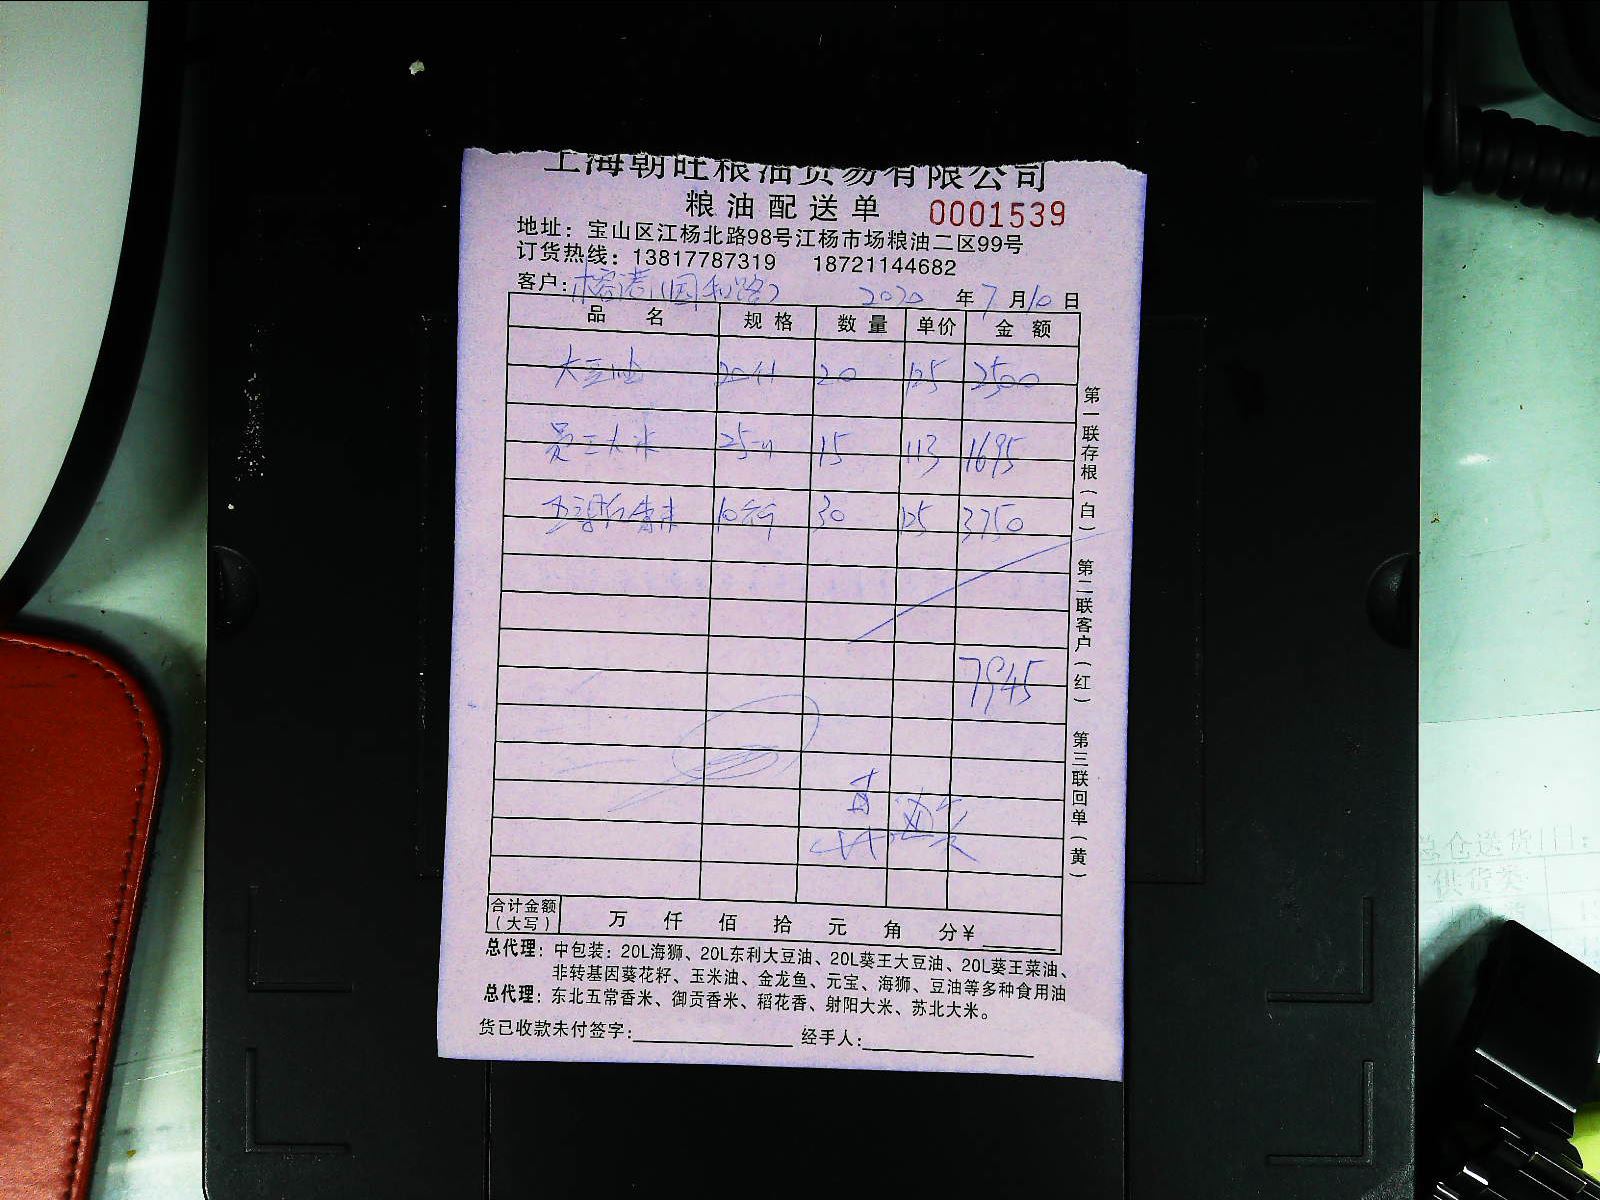 上海朝旺粮油贸易有限公司
粮油配送单 0001539
地址：宝山区江杨北路98号江杨市场粮油二区99号
订货热线：13817787319 18721144682
客户： 2020年7月10日
品名 规格 数量 单价 金额
大豆油 20 20 125 2500
大米 25 15 113 1695
10 30 125 3750
7945
第一联存根（白） 第二联客户（红） 第三联回单（黄）
合计金额（大写） 万 仟 佰 拾 元 角 分¥
总代理：中包装：20L海狮、20L东利大豆油、20L葵王大豆油、20L葵王菜油、
非转基因葵花籽、玉米油、金龙鱼、元宝、海狮、豆油等多种食用油
总代理：东北五常香米、御贡香米、稻花香、射阳大米、苏北大米。
货已收款未付签字： 经手人：
总仓送货日：
供货类